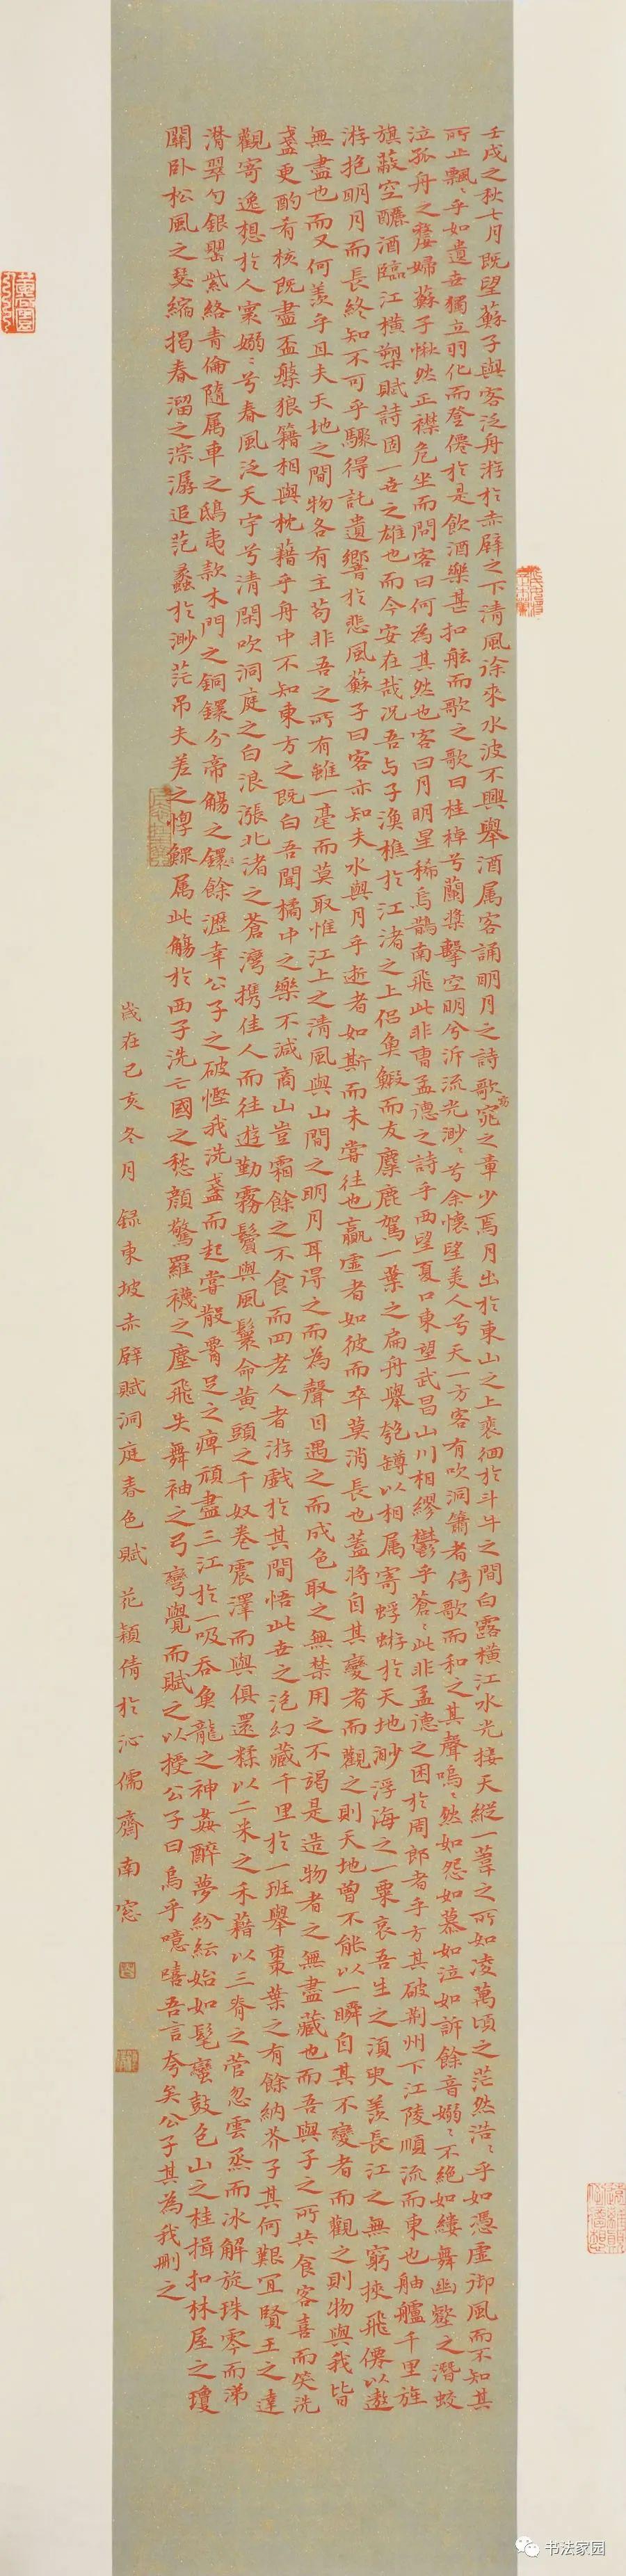 壬戌之秋七月既望蘇子與客泛舟游於赤壁之下清風徐來水波不興舉酒属客誦明月之詩歌窕之章少焉月出於東山之上裵徊於斗牛之間白露橫江水光接天縱一葦之所如凌萬頃之茫然浩〻乎如憑虛御風而不知其
窈
所止飄〻乎如遺世獨立羽化而登僊於是飲酒樂甚扣舷而歌之歌曰桂棹兮蘭槳擊空明兮泝流光渺〻兮余懷望美人兮天一方客有吹洞簫者倚歌而和之其聲嗚〻然如怨如慕如泣如訴餘音嫋〻不絕如縷舞幽壑之潛蛟
泣孤舟之嫠婦蘇子愀然正襟危坐而問客曰何為其然也客曰月明星稀烏鵲南飛此非曹孟德之詩乎西望夏口東望武昌山川相繆鬱乎蒼〻此非孟德之困於周郎者乎方其破荆州下江陵順流而東也舳艫千里旌
旗蔽空釃酒臨江橫槊賦詩固一世之雄也而今安在哉況吾与子漁樵於江渚之上侶魚鰕而友麋鹿駕一葉之扁舟舉匏罇以相属寄蜉蝣於天地渺浮海之一粟哀吾生之須臾羨長江之無窮挾飛僊以遨
游抱明月而長終知不可乎驟得託遺響於悲風蘇子曰客亦知夫水與月乎逝者如斯而未嘗往也贏虛者如彼而卒莫消長也蓋將自其變者而觀之則天地曾不能以一瞬自其不變者而觀之則物與我皆
無盡也而又何羨乎且夫天地之間物各有主苟非吾之所有雖一毫而莫取惟江上之清風與山間之明月耳得之而為聲目遇之而成色取之無禁用之不竭是造物者之無盡藏也而吾與子之所共食客喜而笑洗
盞更酌肴核既盡盃槃狼籍相與枕藉乎舟中不知東方之既白吾聞橘中之樂不減商山豈霜餘之不食而四老人者游戲於其間悟此世之泡幻藏千里於一班舉棗葉之有餘納芥子其何艱宜賢王之達
觀寄逸想於人寰嫋〻兮春風泛天宇兮清閑吹洞庭之白浪漲北渚之蒼灣携佳人而往遊勤霧鬢與風鬟命黄頭之千奴卷震澤而與俱還糅以二米之禾藉以三脊之菅忽雲烝而冰解旋珠零而涕
潸翠勺銀罌紫絡青倫隨属車之鴟夷款木門之銅鐶分帝觴之餘瀝幸公子之破慳我洗盞而起嘗散腰足之痺頑盡三江於一吸吞魚龍之神姦醉夢紛紜始如髦蠻鼓包山之桂揖扣林屋之瓊
關卧松風之瑟縮揭春溜之淙潺追范蠡於渺茫吊夫差之惸鰥属此觴於西子洗亡國之愁顏驚羅襪之塵飛失舞袖之弓彎覺而賦之以授公子曰烏乎噫嘻吾言夸矣公子其為我刪之
歲在己亥冬月錄東坡赤壁賦洞庭春色賦范穎倩於沁儒齋南窓
书法家园